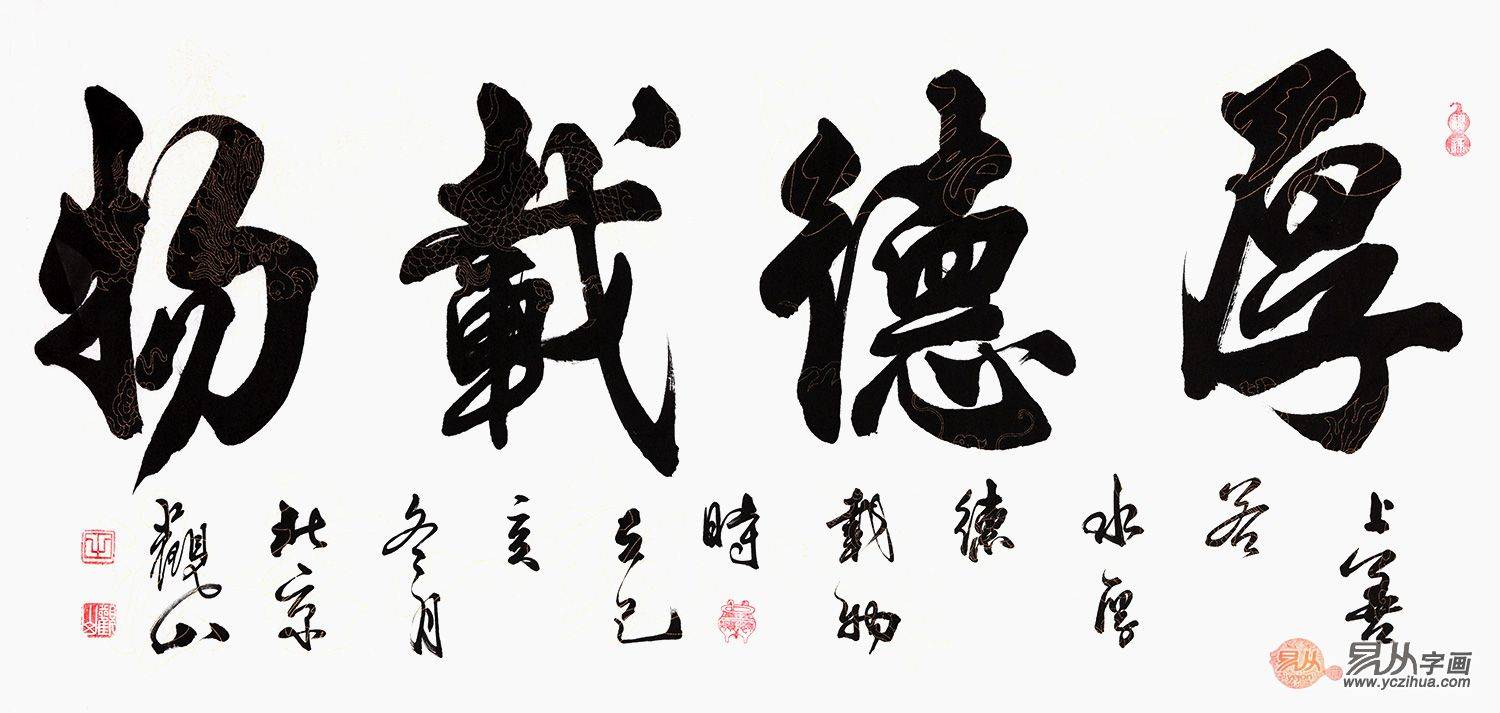 厚德載物
上善
若
水厚
德
載物
時
在己
亥
冬月
北京
觀山
易从
yicon
易从字画
www.yczihua.com